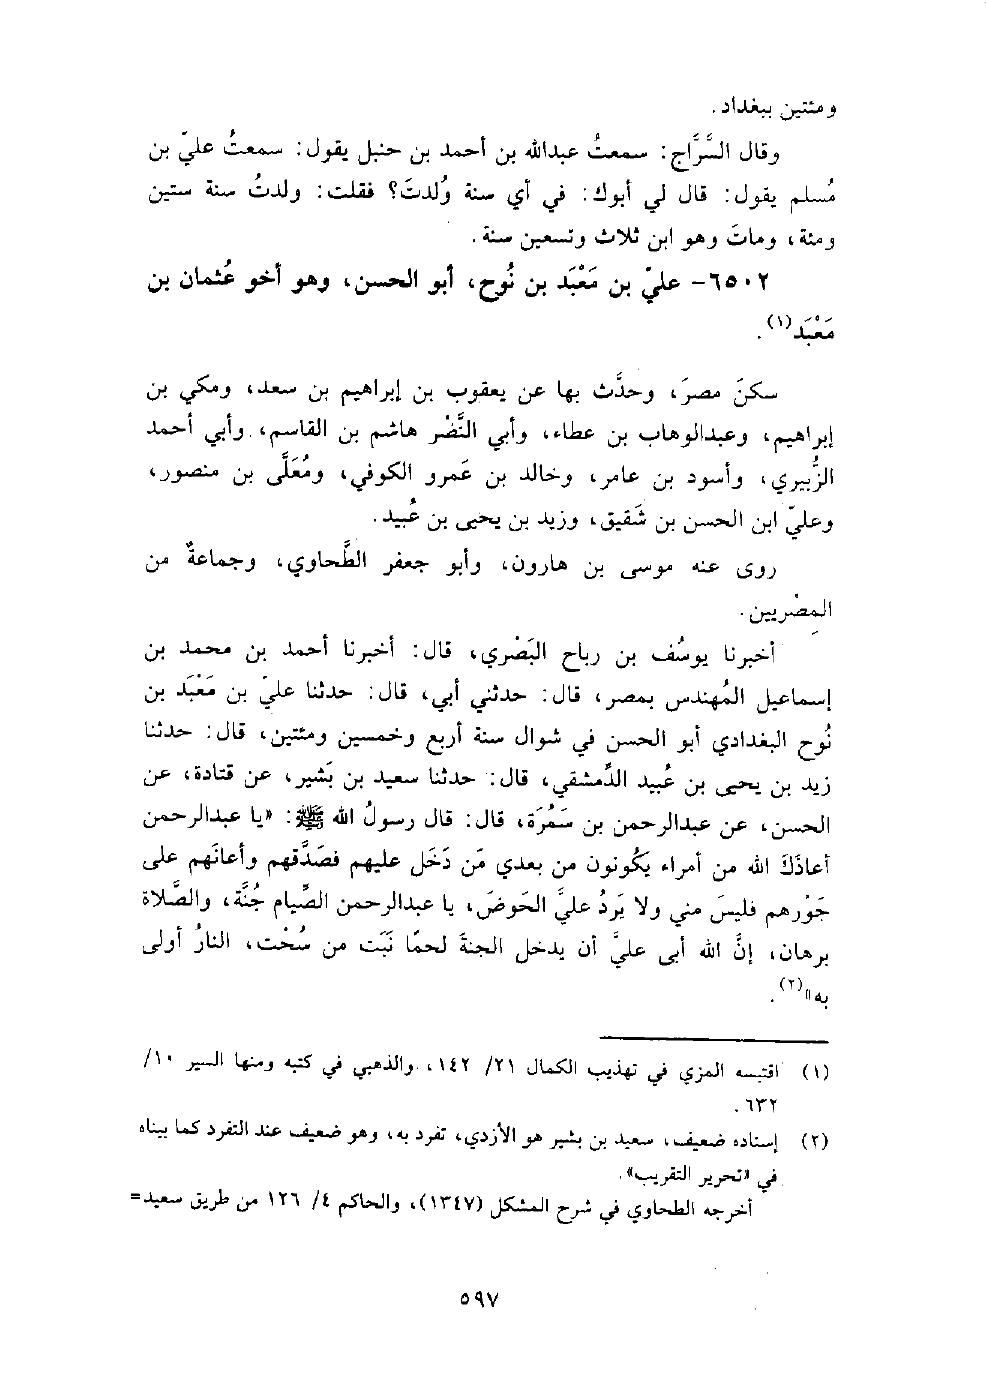 ومئتين ببغداد.
وقال السَّرَّاج: سمعتُ عبدالله بن أحمد بن حنبل يقول: سمعتُ عليّ بن
مُسلم يقول: قال لي أبوك: في أي سنة وُلدتَ؟ فقلت: ولدتُ سنة ستين
ومئة، وماتَ وهو ابن ثلاث وتسعين سنة.
٦٥٠٢- عليّ بن مَعْبَد بن نُوح، أبو الحسن، وهو أخو عُثمان بن
مَعْبَد(١).
سكنَ مصرَ، وحدَّث بها عن يعقوب بن إبراهيم بن سعد، ومكي بن
إبراهيم، وعبدالوهاب بن عطاء، وأبي النَّضْر هاشم بن القاسم، وأبي أحمد
الزُّبيري، وأسود بن عامر، وخالد بن عَمرو الكوفي، ومُعَلَّى بن منصور،
وعليّ ابن الحسن بن شَقيق، وزيد بن يحيى بن عُبيد.
روى عنه موسى بن هارون، وأبو جعفر الطَّحاوي، وجماعةٌ من
المِصْريين.
أخبرنا يوسُف بن رباح البَصْري، قال: أخبرنا أحمد بن محمد بن
إسماعيل المُهندس بمصر، قال: حدثني أبي، قال: حدثنا عليّ بن مَعْبَد بن
نُوح البغدادي أبو الحسن في شوال سنة أربع وخمسين ومئتين، قال: حدثنا
زيد بن يحيى بن عُبيد الدِّمشقي، قال: حدثنا سعيد بن بَشير، عن قتادة، عن
الحسن، عن عبدالرحمن بن سَمُرَة، قال: قال رسولُ الله ﷺ: «يا عبدالرحمن
أعاذَكَ الله من أمراء يَكُونون من بعدي مَن دَخَل عليهم فصَدَّقهم وأعانَهم على
جَوْرهم فليسَ مني ولا يَردُ عليَّ الحَوضَ، يا عبدالرحمن الصِّيام جُنَّة، والصَّلاة
برهان، إنَّ الله أبى عليَّ أن يدخل الجنةَ لحمًا نَبَت من سُحْت، النارُ أولى
به»(٢).
(١) اقتبسه المزي في تهذيب الكمال ٢١/ ١٤٢، والذهبي في كتبه ومنها السير ١٠/
٦٣٢.
(٢) إسناده ضعيف، سعيد بن بشير هو الأزدي، تفرد به، وهو ضعيف عند التفرد كما بيناه
في «تحرير التقريب».
أخرجه الطحاوي في شرح المشكل (١٣٤٧)، والحاكم ٤/ ١٢٦ من طريق سعيد=
٥٩٧